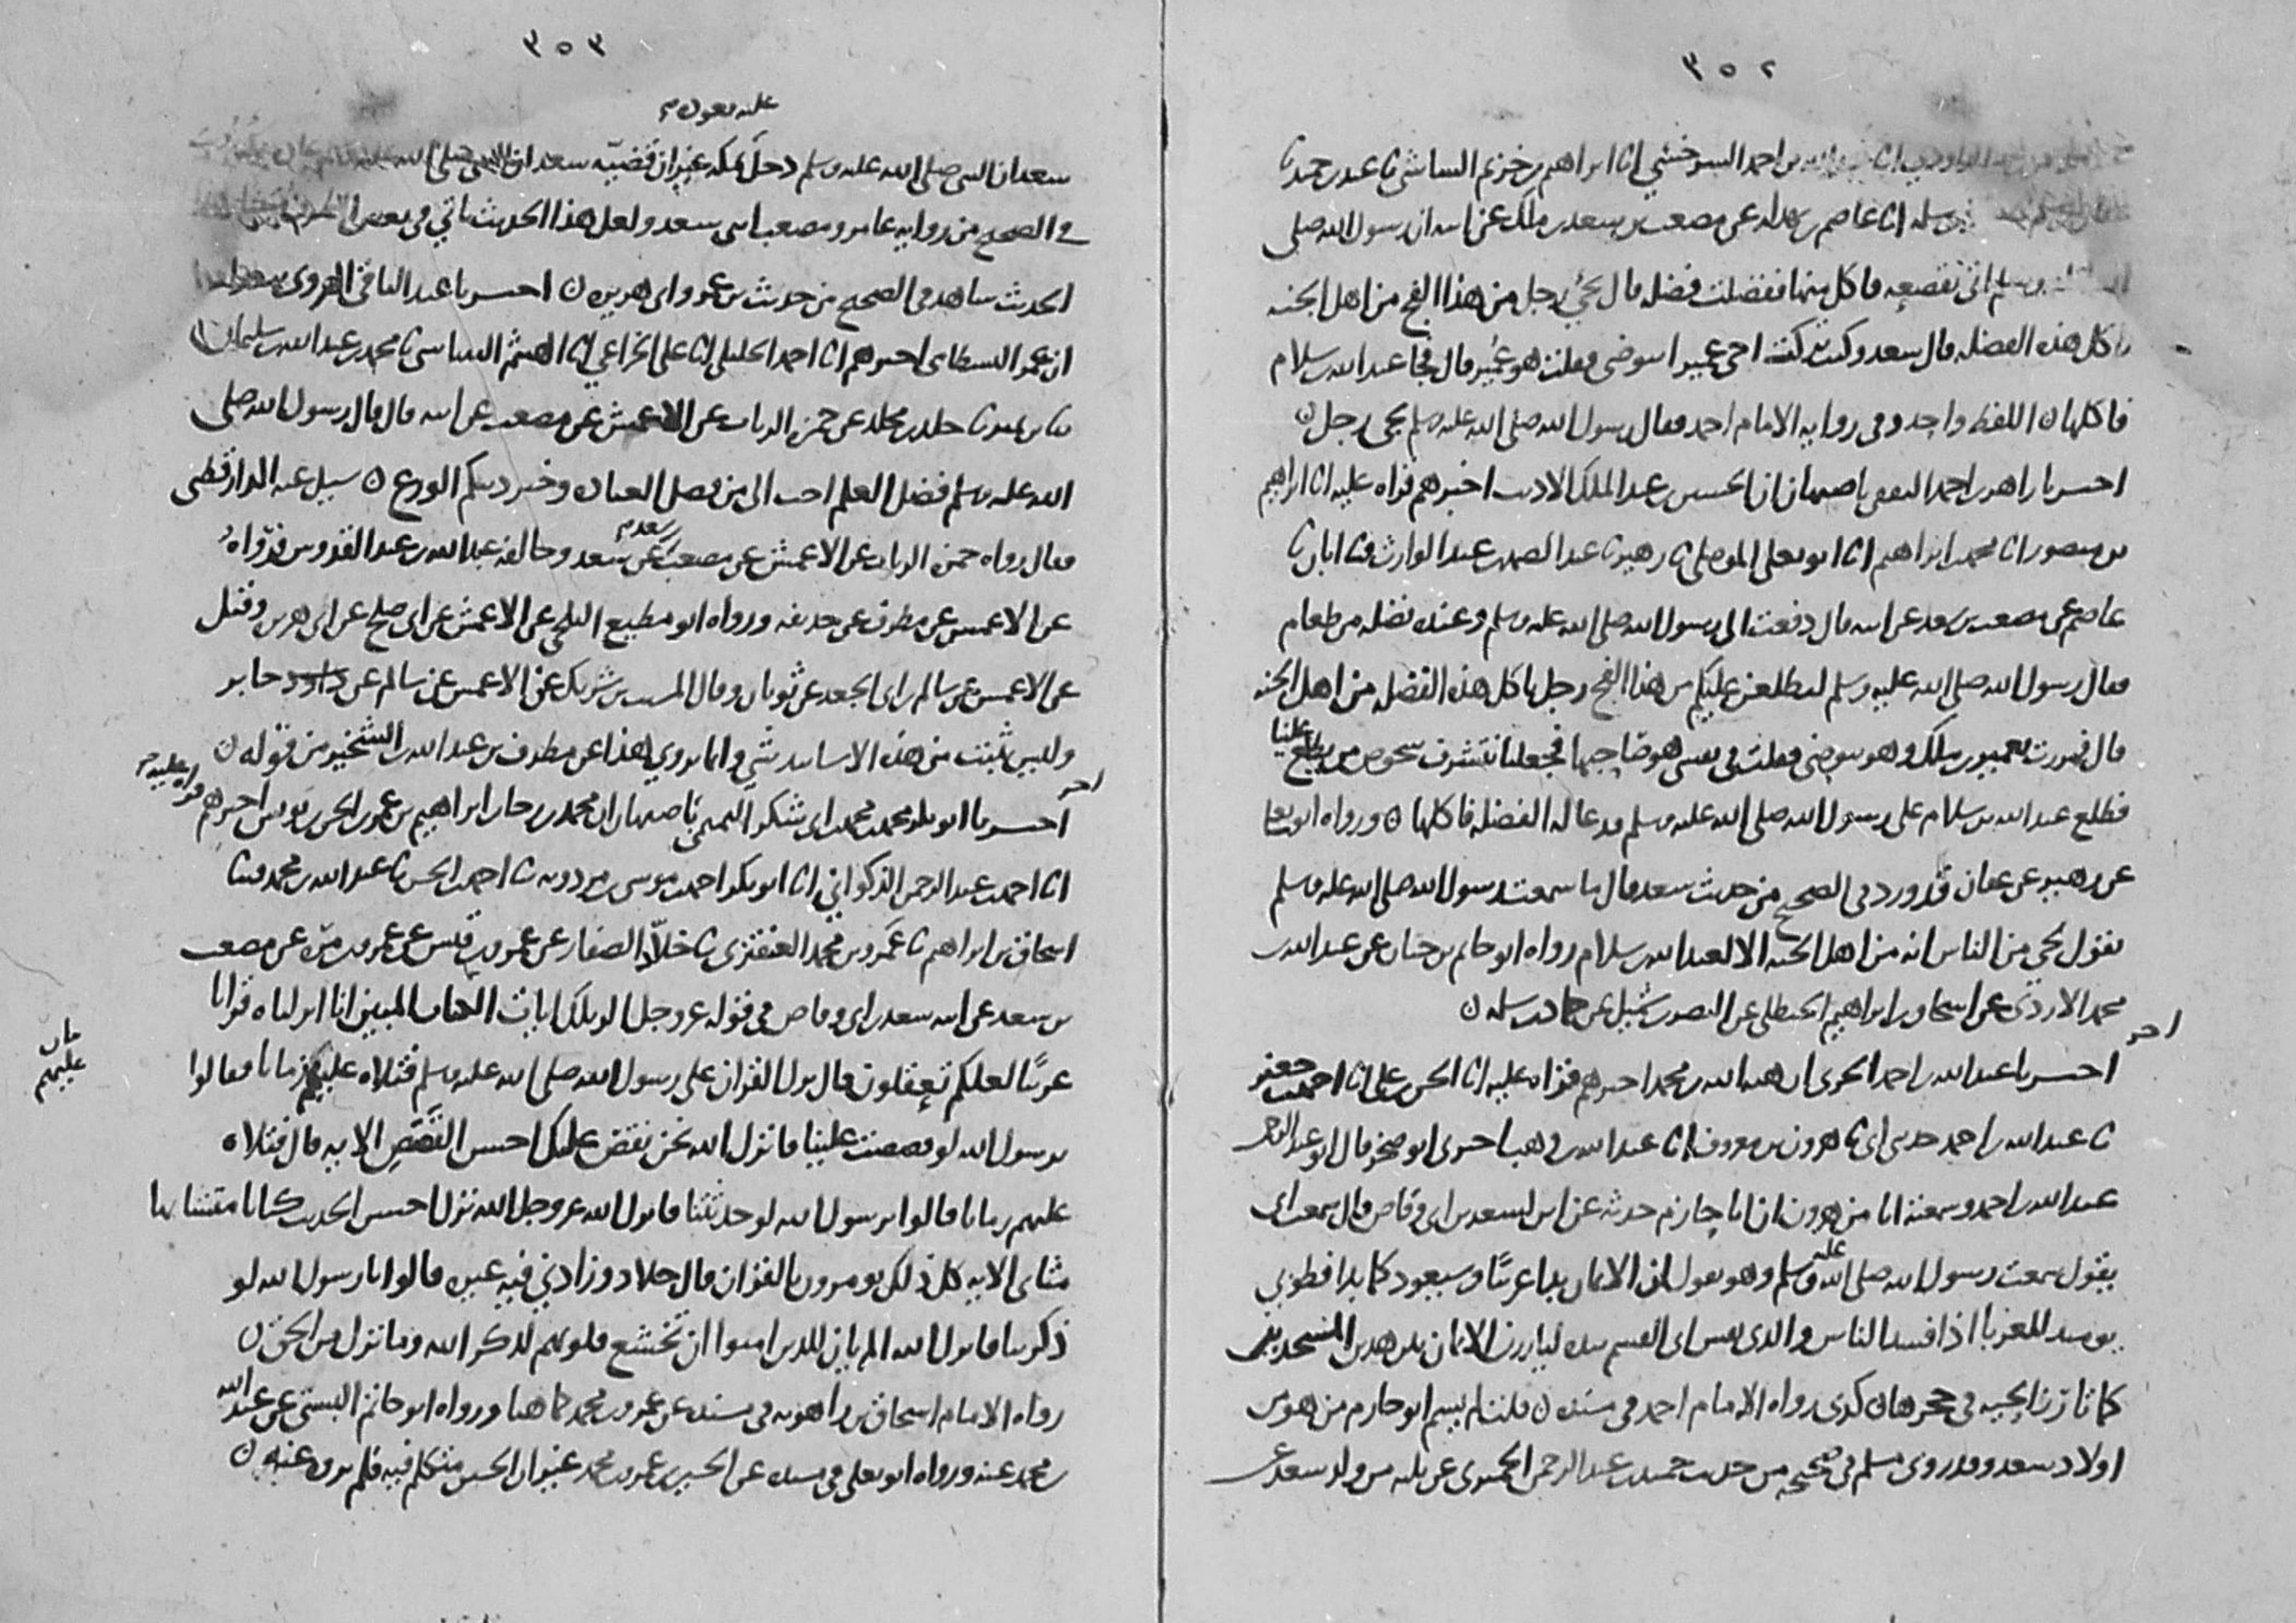 ٣٥٢
بن احمد السرخسي انا ابراهيم بن خزيم الشاشي ثنا عبد بن حميد ثنا
بن سلمه انا عاصم بن بهدله عن مصعب بن سعد بن ملك عن ابيه ان رسول الله صلى
وسلم اتي بقصعه فاكل منها ففضلت فضله قال يجي رجل من هذا الفج من اهل الجنه
ياكل هذه الفضله قال سعد وكنت تركت اخي عمير ا يتوضى فقلت هو عمير قال فجا عبد الله بن سلام
فاكلها ن اللفظ واحد وفي روايه الامام احمد فقال رسول الله صلى الله عليه وسلم يجى رجل ن
اخبرنا زاهر بن احمد الثقفي باصبهان ان الحسين بن عبد الملك الاديب اخبرهم قراه عليه انا ابراهيم
بن منصور انا محمد بن ابراهيم انا ابو يعلى الموصلي ثنا زهير ثنا عبد الصمد بن عبد الوارث ثنا ابان ثنا
عاصم عن مصعب بن سعد عن ابيه قال دفعت الى رسول الله صلى الله عليه وسلم وعنده فضله من طعام
فقال رسول الله صلى الله عليه وسلم ليطلعن عليكم من هذا الفج رجل ياكل هذه الفضله من اهل الجنه
قال فمررت بعمير بن ملك وهو يتوضى فقلت في نفسي هو صاحبها فجعلنا نتشرف شخوص من يطلع علينا
فطلع عبد الله بن سلام على رسول الله صلى الله عليه وسلم فدعا له الفضله فاكلها ن ورواه ابو يعلى
عن زهير عن عفان قد ورد في الصحيح من حديث سعد قال ما سمعت رسول الله صلى الله عليه وسلم
يقول لحي من الناس انه من اهل الجنه الا لعبد الله بن سلام رواه ابو حاتم بن حبان عن عبد الله بن
محمد الازدي عن اسحاق بن ابراهيم الحنظلي عن النضر بن شميل عن حماد بن سلمه ن
اخر
اخبرنا عبد الله بن احمد الحربي ان هبه الله بن محمد اخبرهم قراه عليه انا الحسن بن علي انا احمد بن جعفر
ثنا عبد الله بن احمد حدثني ابي ثنا هرون بن معروف انا عبد الله بن وهب اخبرني ابو صخر قال ابو عبد الرحمن
عبد الله بن احمد وسمعته انا من هرون ان ابا حازم حدثه عن ابن لسعد بن ابي وقاص قال سمعت ابي
يقول سمعت رسول الله صلى الله عليه وسلم وهو يقول ان الايمان بدا غريبا وسيعود كما بدا فطوبى
يوميذ للغربا اذا فسد الناس والذي نفس ابي القسم بيده ليارزن الايمان بين هذين المسجدين
كما تارز الحيه في جحرها ن كذى رواه الامام احمد في مسنده ن قلت لم يسم ابو حازم من هو من
اولاد سعد وقد روى مسلم في صحيحه من حديث حميد بن عبد الرحمن الحميري عن ثلثه من ولد سعد عن
٣٥٣
سعد ان النبي صلى الله عليه وسلم دخل عليه يعوده بمكه غير ان قضيه سعد
في الصحيح من روايه عامر ومصعب ابني سعد ولعل هذا الحديث ياتي في بعض
الحديث شاهد في الصحيح من حديث بن عمر وابي هريره ن اخبرنا عبد الباقي الهروي
ان عمر البسطامي اخبرهم انا احمد الخليلي انا علي الخزاعي انا الهيثم الشاشي ثنا محمد بن عبد الله بن سليمان
ثنا بن نمير ثنا خلد بن مخلد عن حمزه الزيات عن الاعمش عن مصعب عن ابيه قال قال رسول الله صلى
الله عليه وسلم فضل العلم احب الي من فضل العباده وخير دينكم الورع ن سيل عنه الدارقطني
فقال رواه حمزه الزيات عن الاعمش عن مصعب بن سعد عن سعد وخالفه عبد الله بن عبد القدوس فرواه
عن الاعمش عن مطرف عن حذيفه ورواه ابو مطيع البلخي عن الاعمش عن ابي صلح عن ابي هريره وقيل
عن الاعمش عن سالم بن ابي الجعد عن ثوبان وقال المسيب بن شريك عن الاعمش عن سالم عن جابر
وليس يثبت من هذه الاسانيد شي وانما يروي هذا عن مطرف بن عبد الله بن الشخير من قوله ن
اخر
اخبرنا ابو بكر محمد بن محمد بن ابي شكر التميمي باصبهان ان محمد بن رجا بن ابراهيم بن عمر بن الحسن بن يونس اخبرهم قراه عليه
انا احمد بن عبد الرحمن الذكواني انا ابو بكر احمد بن موسى بن مردويه ثنا احمد بن الحسن ثنا عبد الله بن محمد ثنا
اسحاق بن ابراهيم ثنا عمرو بن محمد العنقزي ثنا خلاد الصفار عن عمرو بن قيس عن عمرو بن مره عن مصعب
بن سعد عن ابيه سعد بن ابي وقاص في قوله عز وجل الر تلك ايات الكتاب المبين انا انزلناه قرانا
عربيا لعلكم تعقلون قال نزل القران على رسول الله صلى الله عليه وسلم فتلاه عليهم زمانا فقالوا
يرسول الله لو قصصت علينا فانزل الله نحن نقص عليك احسن القصص الايه قال فتلاه
عليهم زمانا قالوا يرسول الله لو حدثتنا فانزل الله عز وجل الله نزل احسن الحديث كتابا متشابها
مثاني الايه كل ذلك يومرون بالقران قال خلاد وزادني فيه غيره قالوا يا رسول الله لو
ذكرتنا فانزل الله الم يان للذين امنوا ان تخشع قلوبهم لذكر الله وما نزل من الحق ن
رواه الامام اسحاق بن راهويه في مسنده عن عمرو بن محمد كما هنا ورواه ابو حاتم البستي عن عبد الله
بن محمد عنه ورواه ابو يعلى في مسنده عن الحسين بن عمرو بن محمد غير ان الحسين متكلم فيه فلم نروه عنه ن